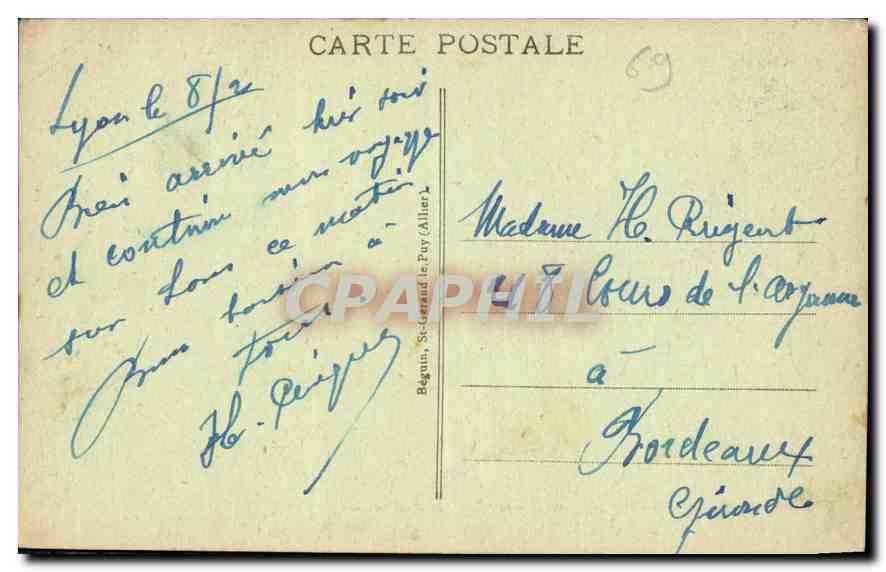 CARTE POSTALE
69
Lyon le 8/2
Bien arrivé hier soir
et continu mon voyage
sur Lons ce matin
Bon baisers à
tous
H. Prigent
Béguin, St-Gérand le Puy (Allier).
Madame H. Prigent
48 Cours de l'argonne
à
Bordeaux
Gironde
CPAPHIL